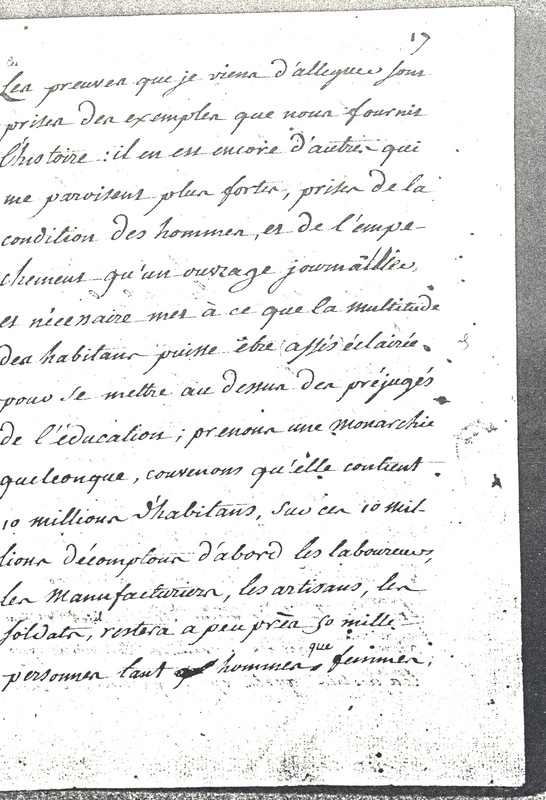 17
Les preuves que je viens d'alleguer sont
prises des exemples que nous fournit
l'histoire : il en est encore d'autres qui
me paroisent plus fortes, prises de la
condition des hommes, et de l'empe-
chement qu'un ouvrage journallier,
et nécessaire met à ce que la multitude
des habitans puisse être assés éclairée
pour se mettre au dessus des préjugés
de l'éducation ; prenons une monarchie
quelconque, convenons qu'elle contient
10 millions d'habitans, sur ces 10 mil-
lions décomptons d'abord les laboureurs,
les manufacturiers, les artisans, les
soldats, restera a peu près 50 mille
personnes tant hommes que femmes ;